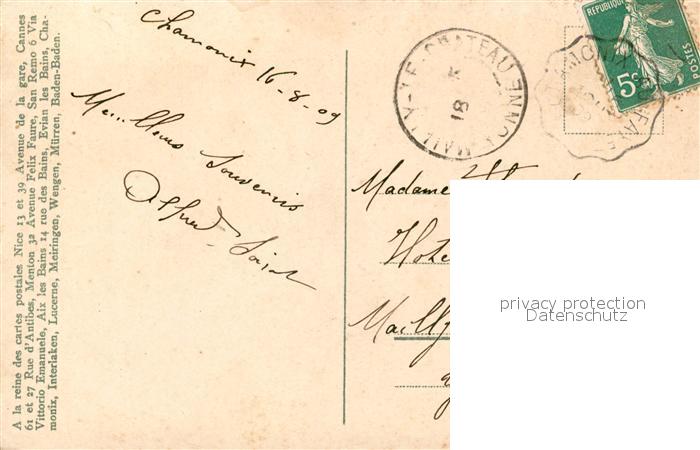 A la reine des cartes postales Nice 13 et 39 Avenue de la gare, Cannes
61 et 27 Rue d'Antibes, Menton 32 Avenue Felix Faure, San Remo 6 Via
Vittorio Emanuele, Aix les Bains 14 rue des Bains, Evian les Bains, Cha-
monix, Interlaken, Lucerne, Meiringen, Wengen, Mürren, Baden-Baden.
Chamonix 16-8-09
Meilleurs Souvenirs
Alfred
MAILLY-LE-CHATEAU YONNE
18
REPUBLIQUE
5c
POSTES
Madame
Hote
Mailly
privacy protection
Datenschutz